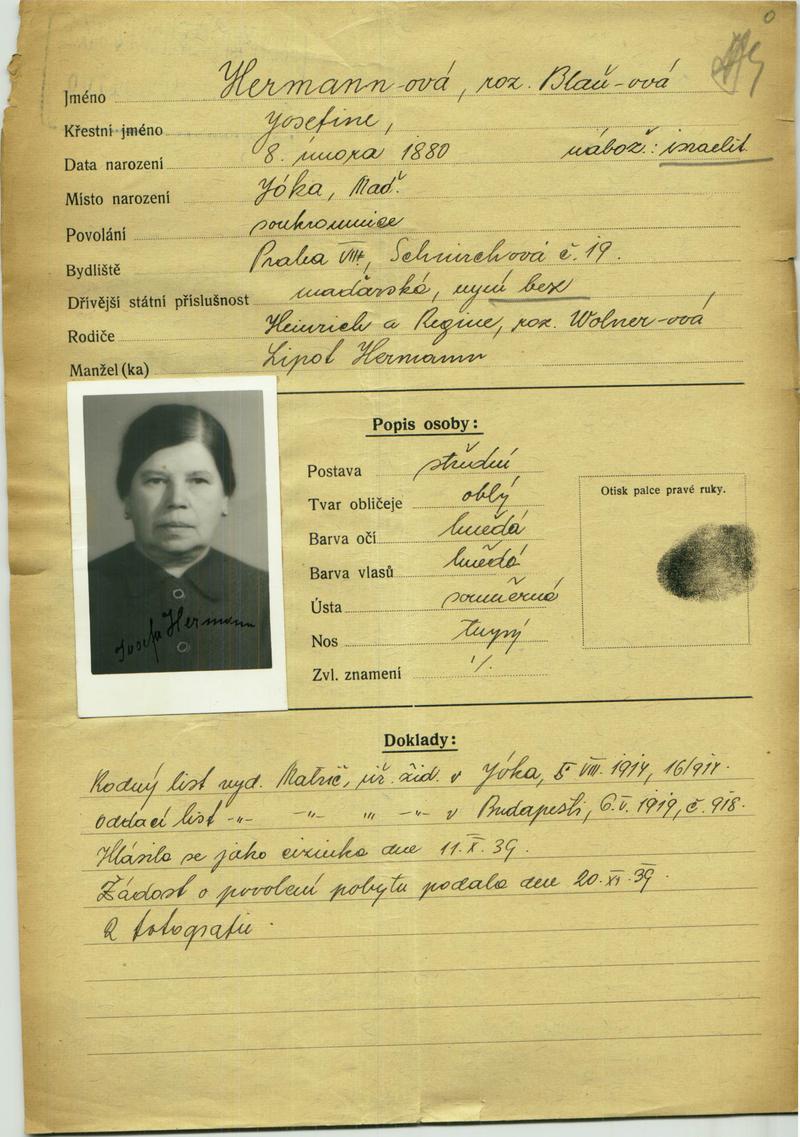 Jméno Hermann-ová, roz. Blau-ová
Křestní jméno Josefine,
Data narození 8. února 1880 nábož.: israelit.
Místo narození Jóka, Maď.
Povolání soukromnice
Bydliště Praha VIII, Schnirchová č. 19.
Dřívější státní příslušnost maďarská, nyní bez
Rodiče Heinrich a Regine, roz. Wolner-ová
Manžel(ka) Lipot Hermann
Popis osoby:
Postava střední
Tvar obličeje oblý
Barva očí hnědá
Barva vlasů hnědá
Ústa souměrná
Nos tupý
Zvl. znamení ·/.
Otisk palce pravé ruky.
Josefa Hermann
Doklady:
Rodný list vyd. Matrič. úř. žid. v Jóka, 5. VIII. 1914, 16/914.
Oddací list -„- -„- „ -„- v Budapešti, 6. V. 1919, č. 918.
Hlásila se jako cizinka dne 11. X. 39.
Žádost o povolení pobytu podala dne 20. XI. 39.
2 fotografie.